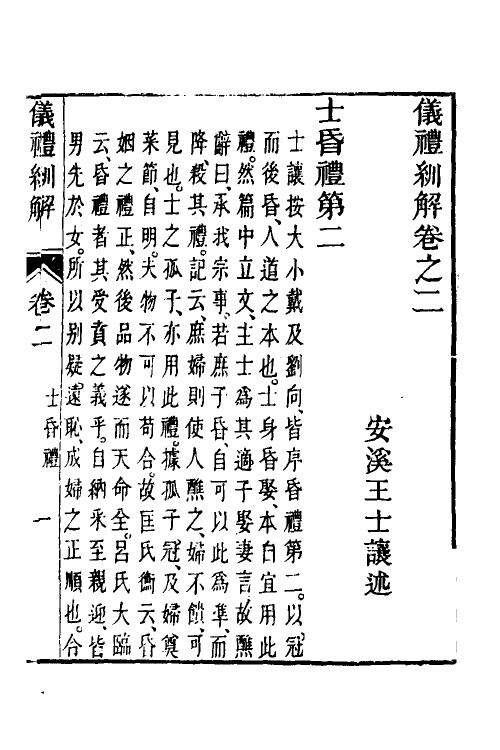 儀禮紃解卷之二
安溪王士讓述
士昏禮第二
士讓按大小戴及劉向、皆序昏禮第二。以冠
而後昏、人道之本也。士身昏娶、本自宜用此
禮。然篇中立文、主士為其適子娶妻言。故醮
辭曰、承我宗事、若庶子昏、自可以此為準、而
降殺其禮。記云、庶婦則使人醮之、婦不饋、可
見也。士之孤子、亦用此禮。據孤子冠、及婦奠
菜節、自明。夫物不可以苟合。故匡氏衡云、昏
姻之禮正、然後品物遂而天命全。呂氏大臨
云、昏禮者其受賁之義乎。自納采至親迎、皆
男先於女。所以別疑遠恥、成婦之正順也。合
儀禮紃解
卷二
士昏禮
一